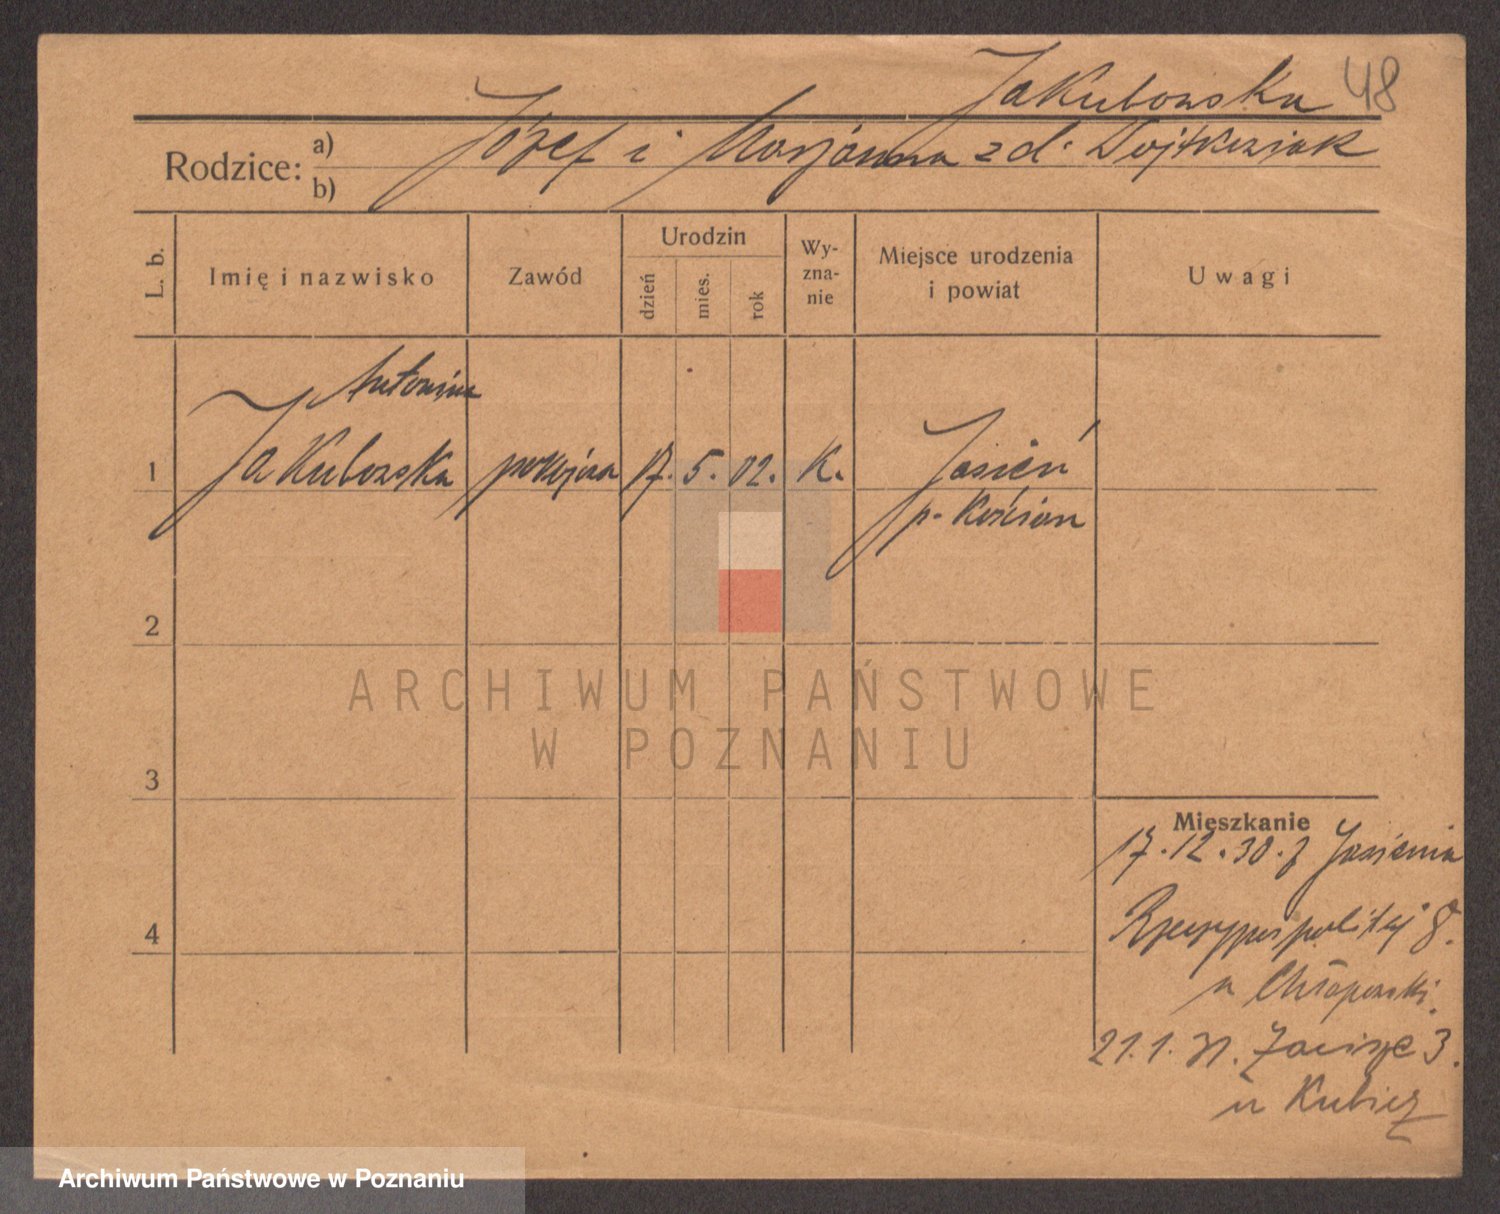 Jakubowska 48
Rodzice: a) b) Józef i Marjanna z d. Wojtkowiak
L. b.
Imię i nazwisko
Zawód
Urodzin
dzień
mies.
rok
Wy-
zna-
nie
Miejsce urodzenia
i powiat
Uwagi
Antonina
1 Jakubowska pokojowa 17. 5. 02. K. Jasień
p. Kościan
2
3
4
Mieszkanie
17.12.30. z Jasienia
Rzeczypospolitej 8.
u Chłapowski.
21.1.31. Zacisze 3.
u Kubicz
ARCHIWUM PAŃSTWOWE
W POZNANIU
Archiwum Państwowe w Poznaniu